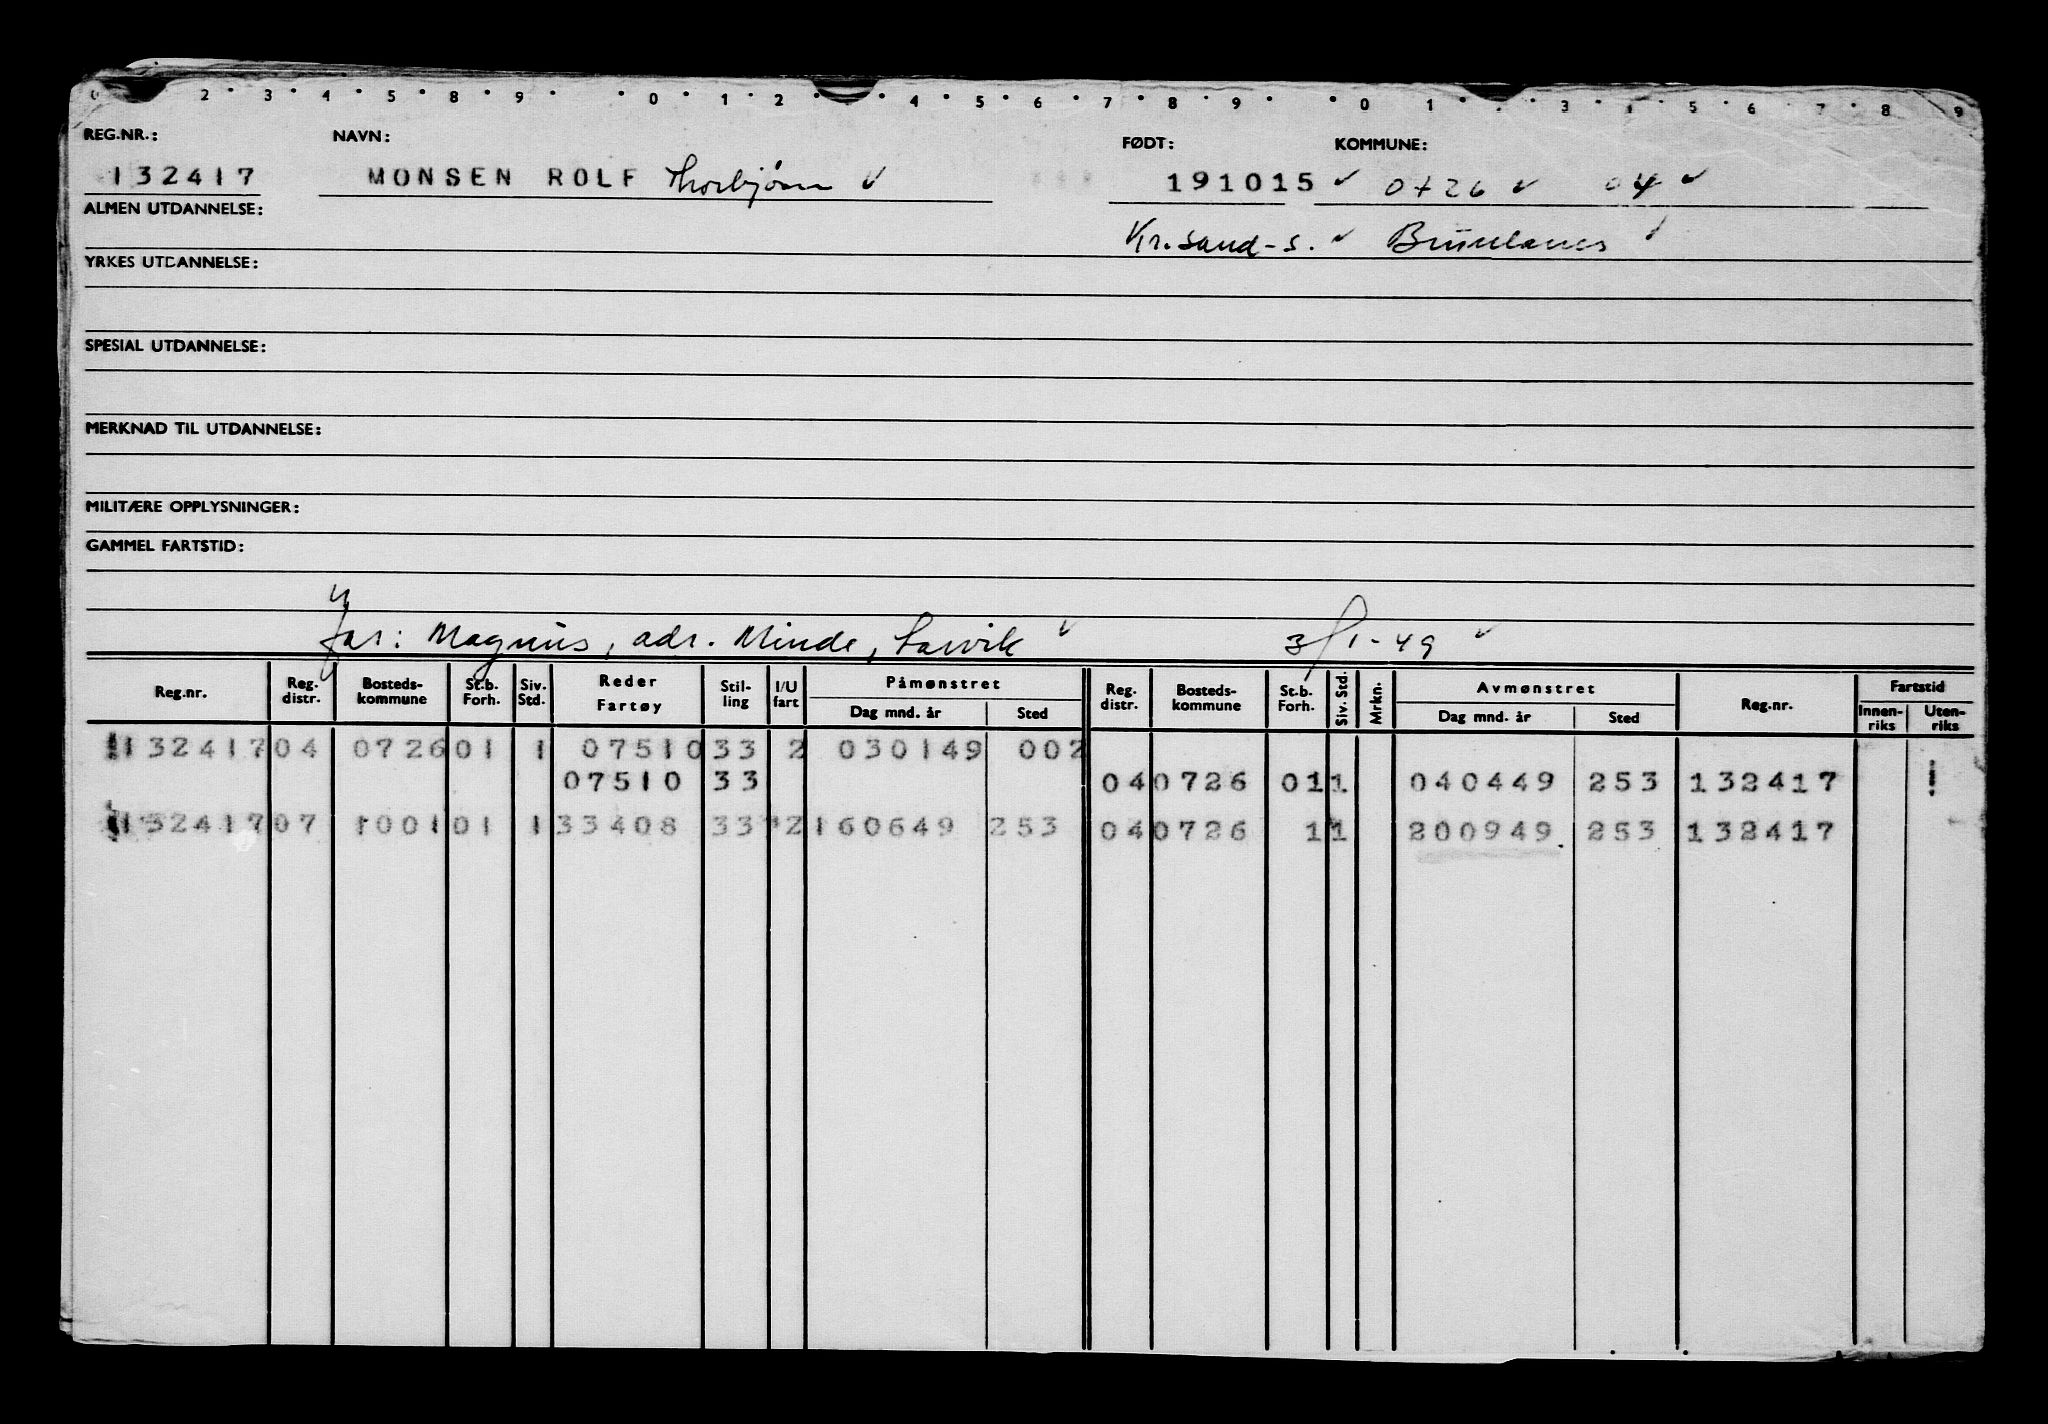 0 2 3 4 5 8 9 0 1 2 4 5 6 7 8 9 0 1 3 4 5 6 7 8 9
REG.NR.: NAVN: FØDT: KOMMUNE:
132417 MONSEN ROLF Thorbjørn ✓ 191015 ✓ 0726 ✓ 04 ✓
ALMEN UTDANNELSE: Kr.sand-S. ✓ Brunlanes ✓
YRKES UTDANNELSE:
SPESIAL UTDANNELSE:
MERKNAD TIL UTDANNELSE:
MILITÆRE OPPLYSNINGER:
GAMMEL FARTSTID:
far: Magnus, adr. Minde, Larvik ✓ 3/1-49 ✓
Reg.nr. Reg. distr. Bosteds-kommune St.b. Forh. Siv. Std. Reder Fartøy Stil-ling I/U fart Påmønstret Dag mnd. år Sted Reg. distr. Bosteds-kommune St.b. Forh. Siv. Std. Mrkn. Avmønstret Dag mnd. år Sted Reg.nr. Fartstid Innen-riks Uten-riks
132417 04 0726 01 1 07510 33 2 030149 002
07510 33 04 0726 01 1 040449 253 132417
132417 07 1001 01 1 33408 33 2 160649 253 04 0726 1 1 200949 253 132417